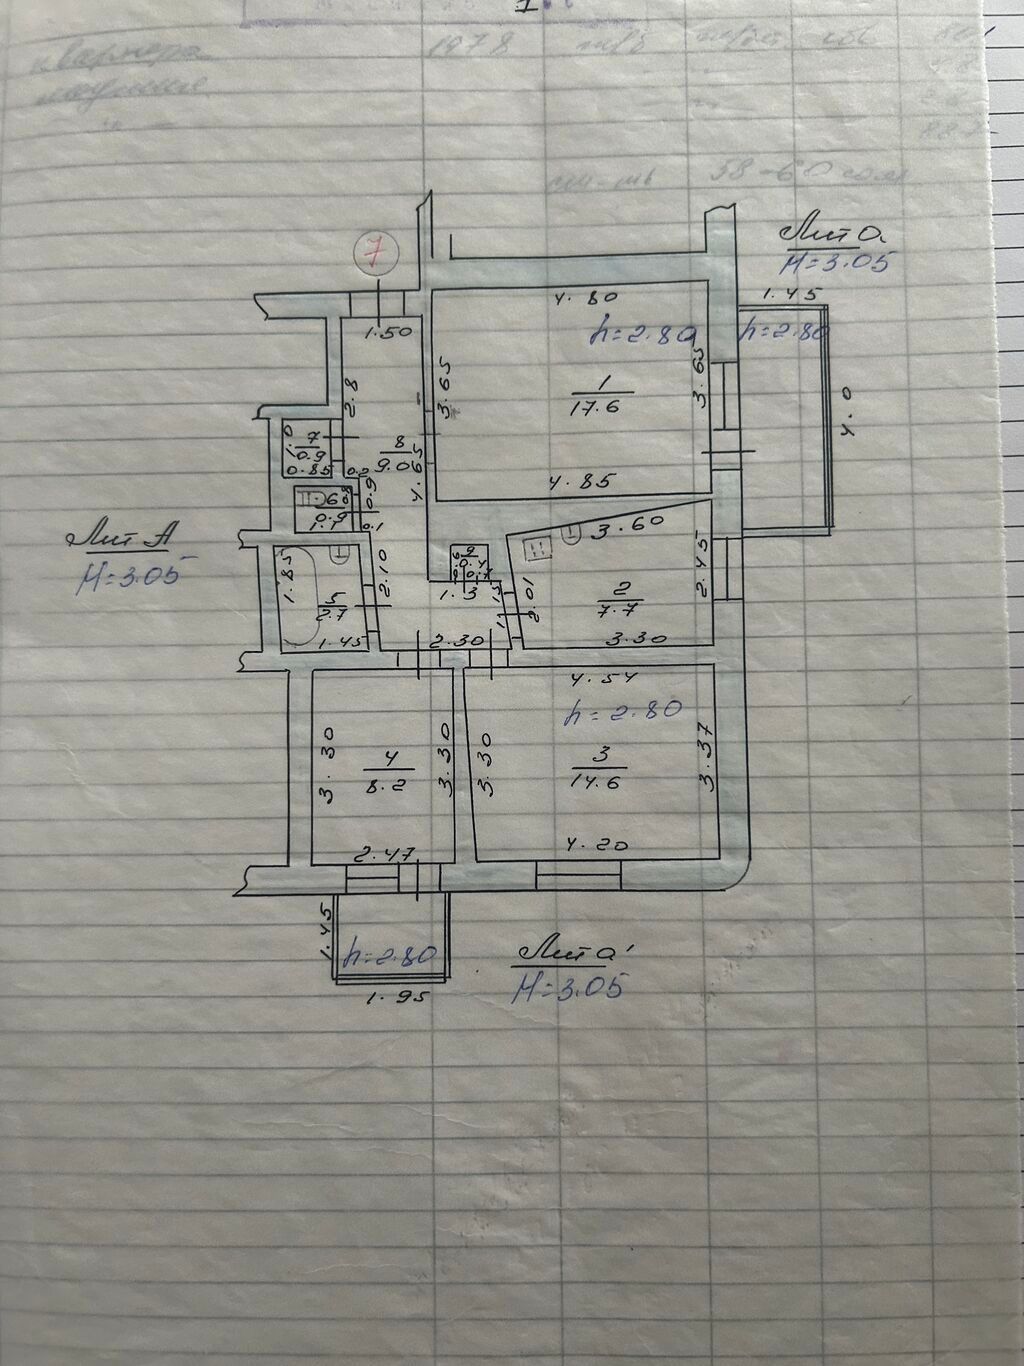 1978
58-60
7
Лит а
H=3.05
1.45
4.80
1.50
h=2.80
h=2.80
2.8
3.65
3.65
4.0
1
17.6
1.0
7
0.9
0.85
0.2
8
9.0
4.65
4.85
6
0.9
1.1
0.8
0.9
0.1
3.60
Лит А
H=3.05
1.85
2.10
2.45
5
2.7
1.45
1.3
2.01
2
7.7
2.30
3.30
4.54
h=2.80
3.30
4
8.2
3.30
3.30
3
14.6
3.37
2.47
4.20
1.45
h=2.80
1.95
Лит а'
H=3.05